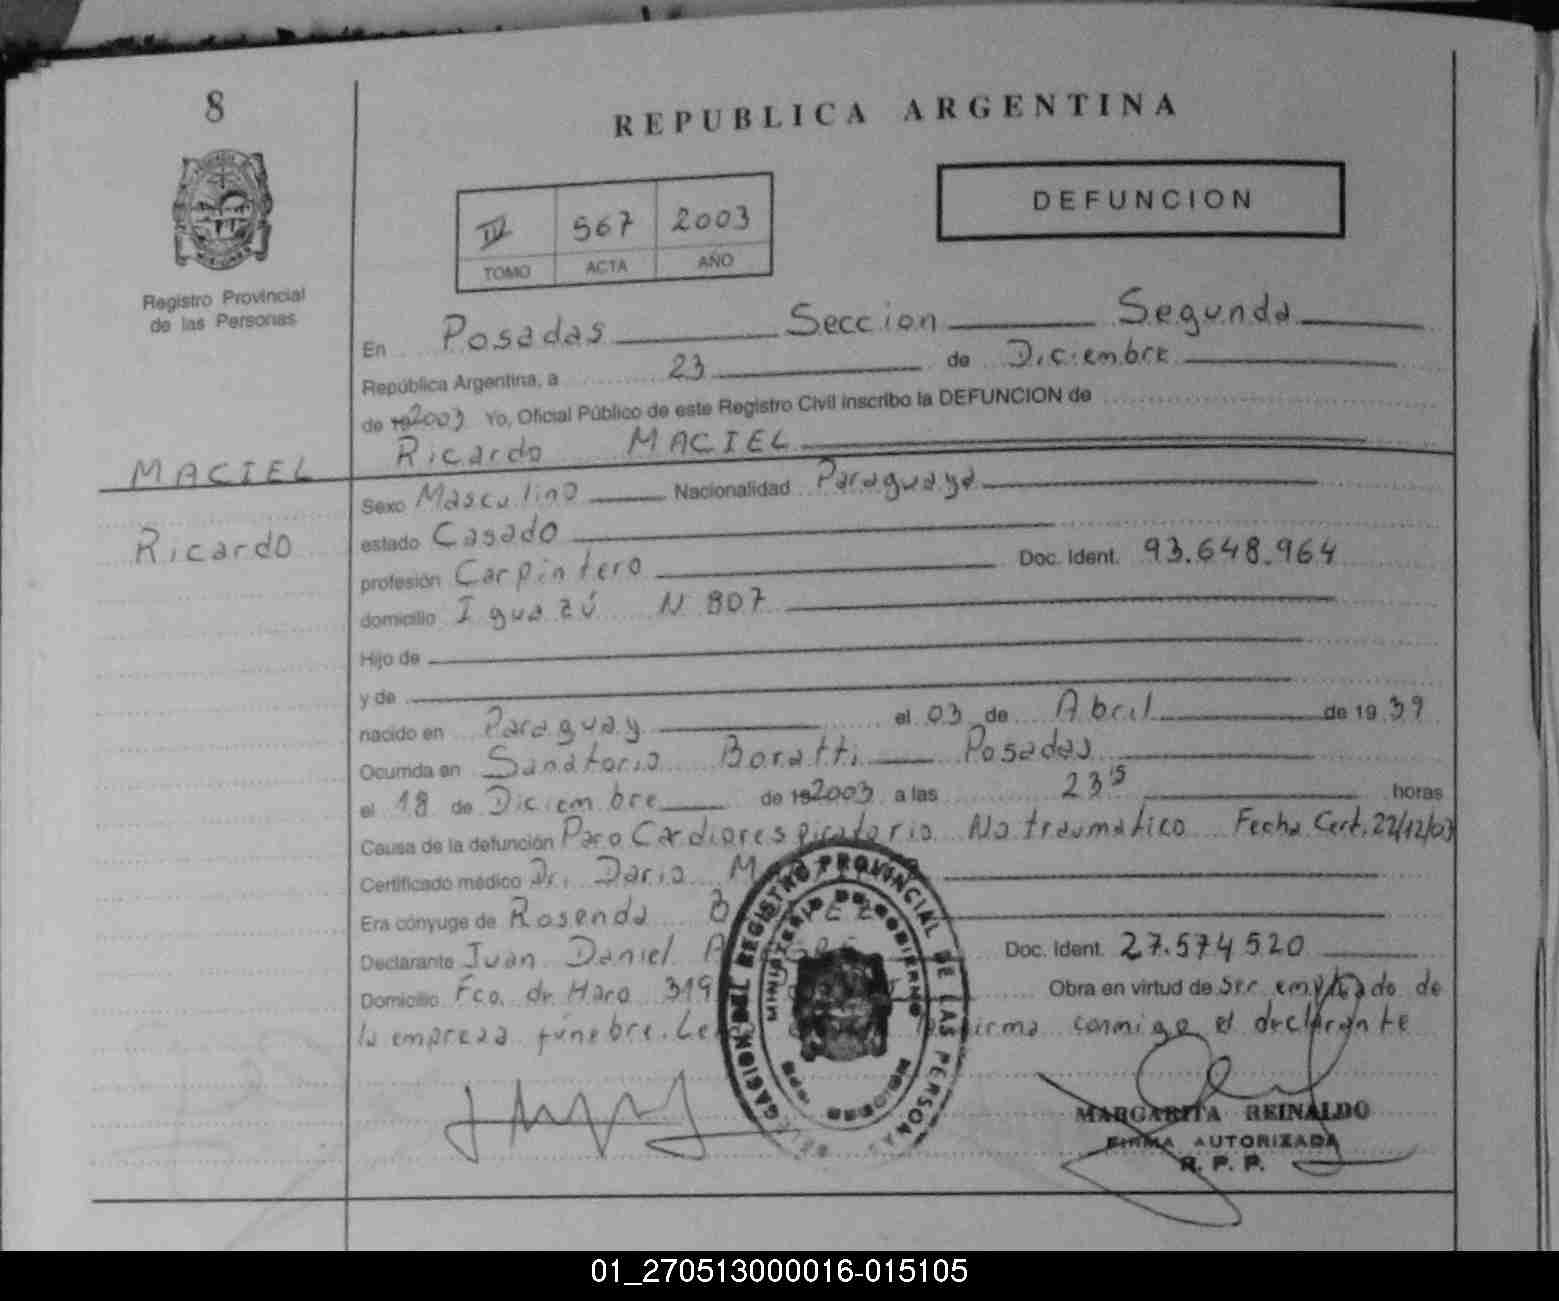 8
REPUBLICA ARGENTINA
DEFUNCION
IV 567 2003
TOMO ACTA AÑO
Registro Provincial
de las Personas
En Posadas Seccion Segunda
República Argentina, a 23 de Diciembre
de 19 2003 Yo, Oficial Público de este Registro Civil inscribo la DEFUNCION de
Ricardo MACIEL
MACIEL
Ricardo
Sexo Masculino Nacionalidad Paraguaya
estado Casado
profesión Carpintero Doc. Ident. 93.648.964
domicilio Iguazú N 807
Hijo de
y de
nacido en Paraguay el 03 de Abril de 19 39
Ocurrida en Sanatorio Boratti Posadas
el 18 de Diciembre de 19 2003 a las 23 15 horas
Causa de la defunción Paro Cardiorespiratorio No traumatico Fecha Cert. 22/12/03
Certificado médico Dr. Dario
Era cónyuge de Rosenda
Declarante Juan Daniel Doc. Ident. 27.574520
Domicilio Fco. de Haro 319 Obra en virtud de ser empleado de
la empresa fúnebre. firma conmigo el declarante
DELEGACION DEL REGISTRO PROVINCIAL DE LAS PERSONAS
MINISTERIO DE GOBIERNO
MARGARITA REINALDO
FIRMA AUTORIZADA
R. P. P.
01_270513000016-015105